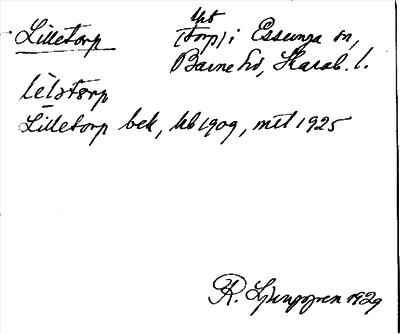 Lilletorp
lpt
(torp) i Essunga sn,
Barne hd, Skarab. l.
lèlstɵrp
Lilletorp bek, kb 1909, mtl 1925
R. Ljunggren 1929